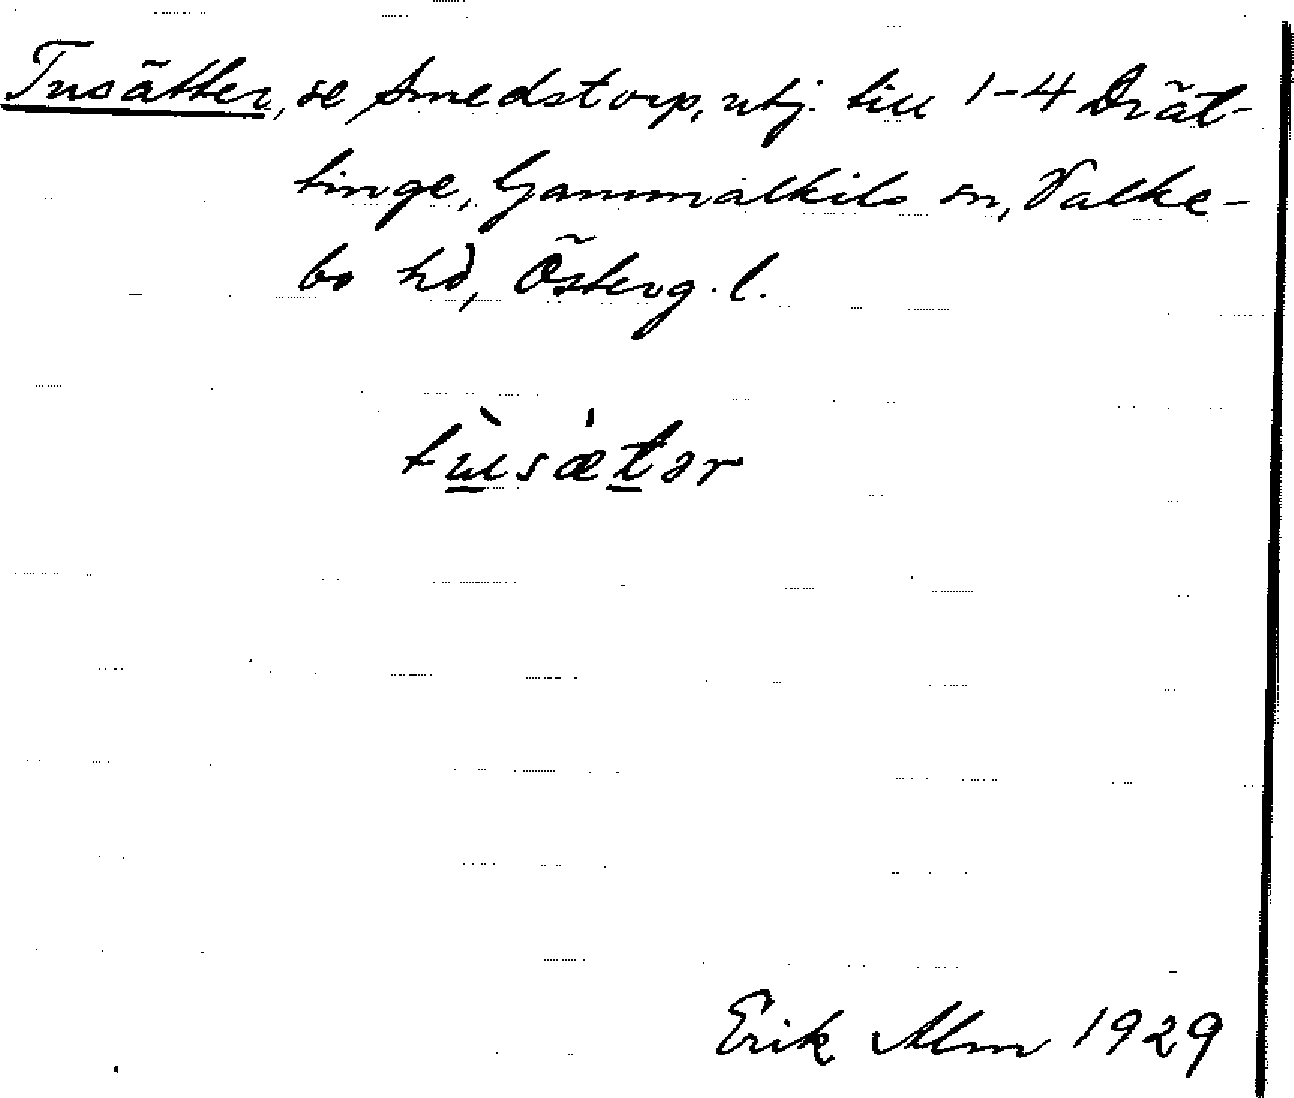 Tusätter, se Smedstorp, utj. till 1-4 Drät-
tinge, Gammalkils sn, Valke-
bo hd, Österg. l.
tù̱sæ̀ṯər
Erik Alm 1929